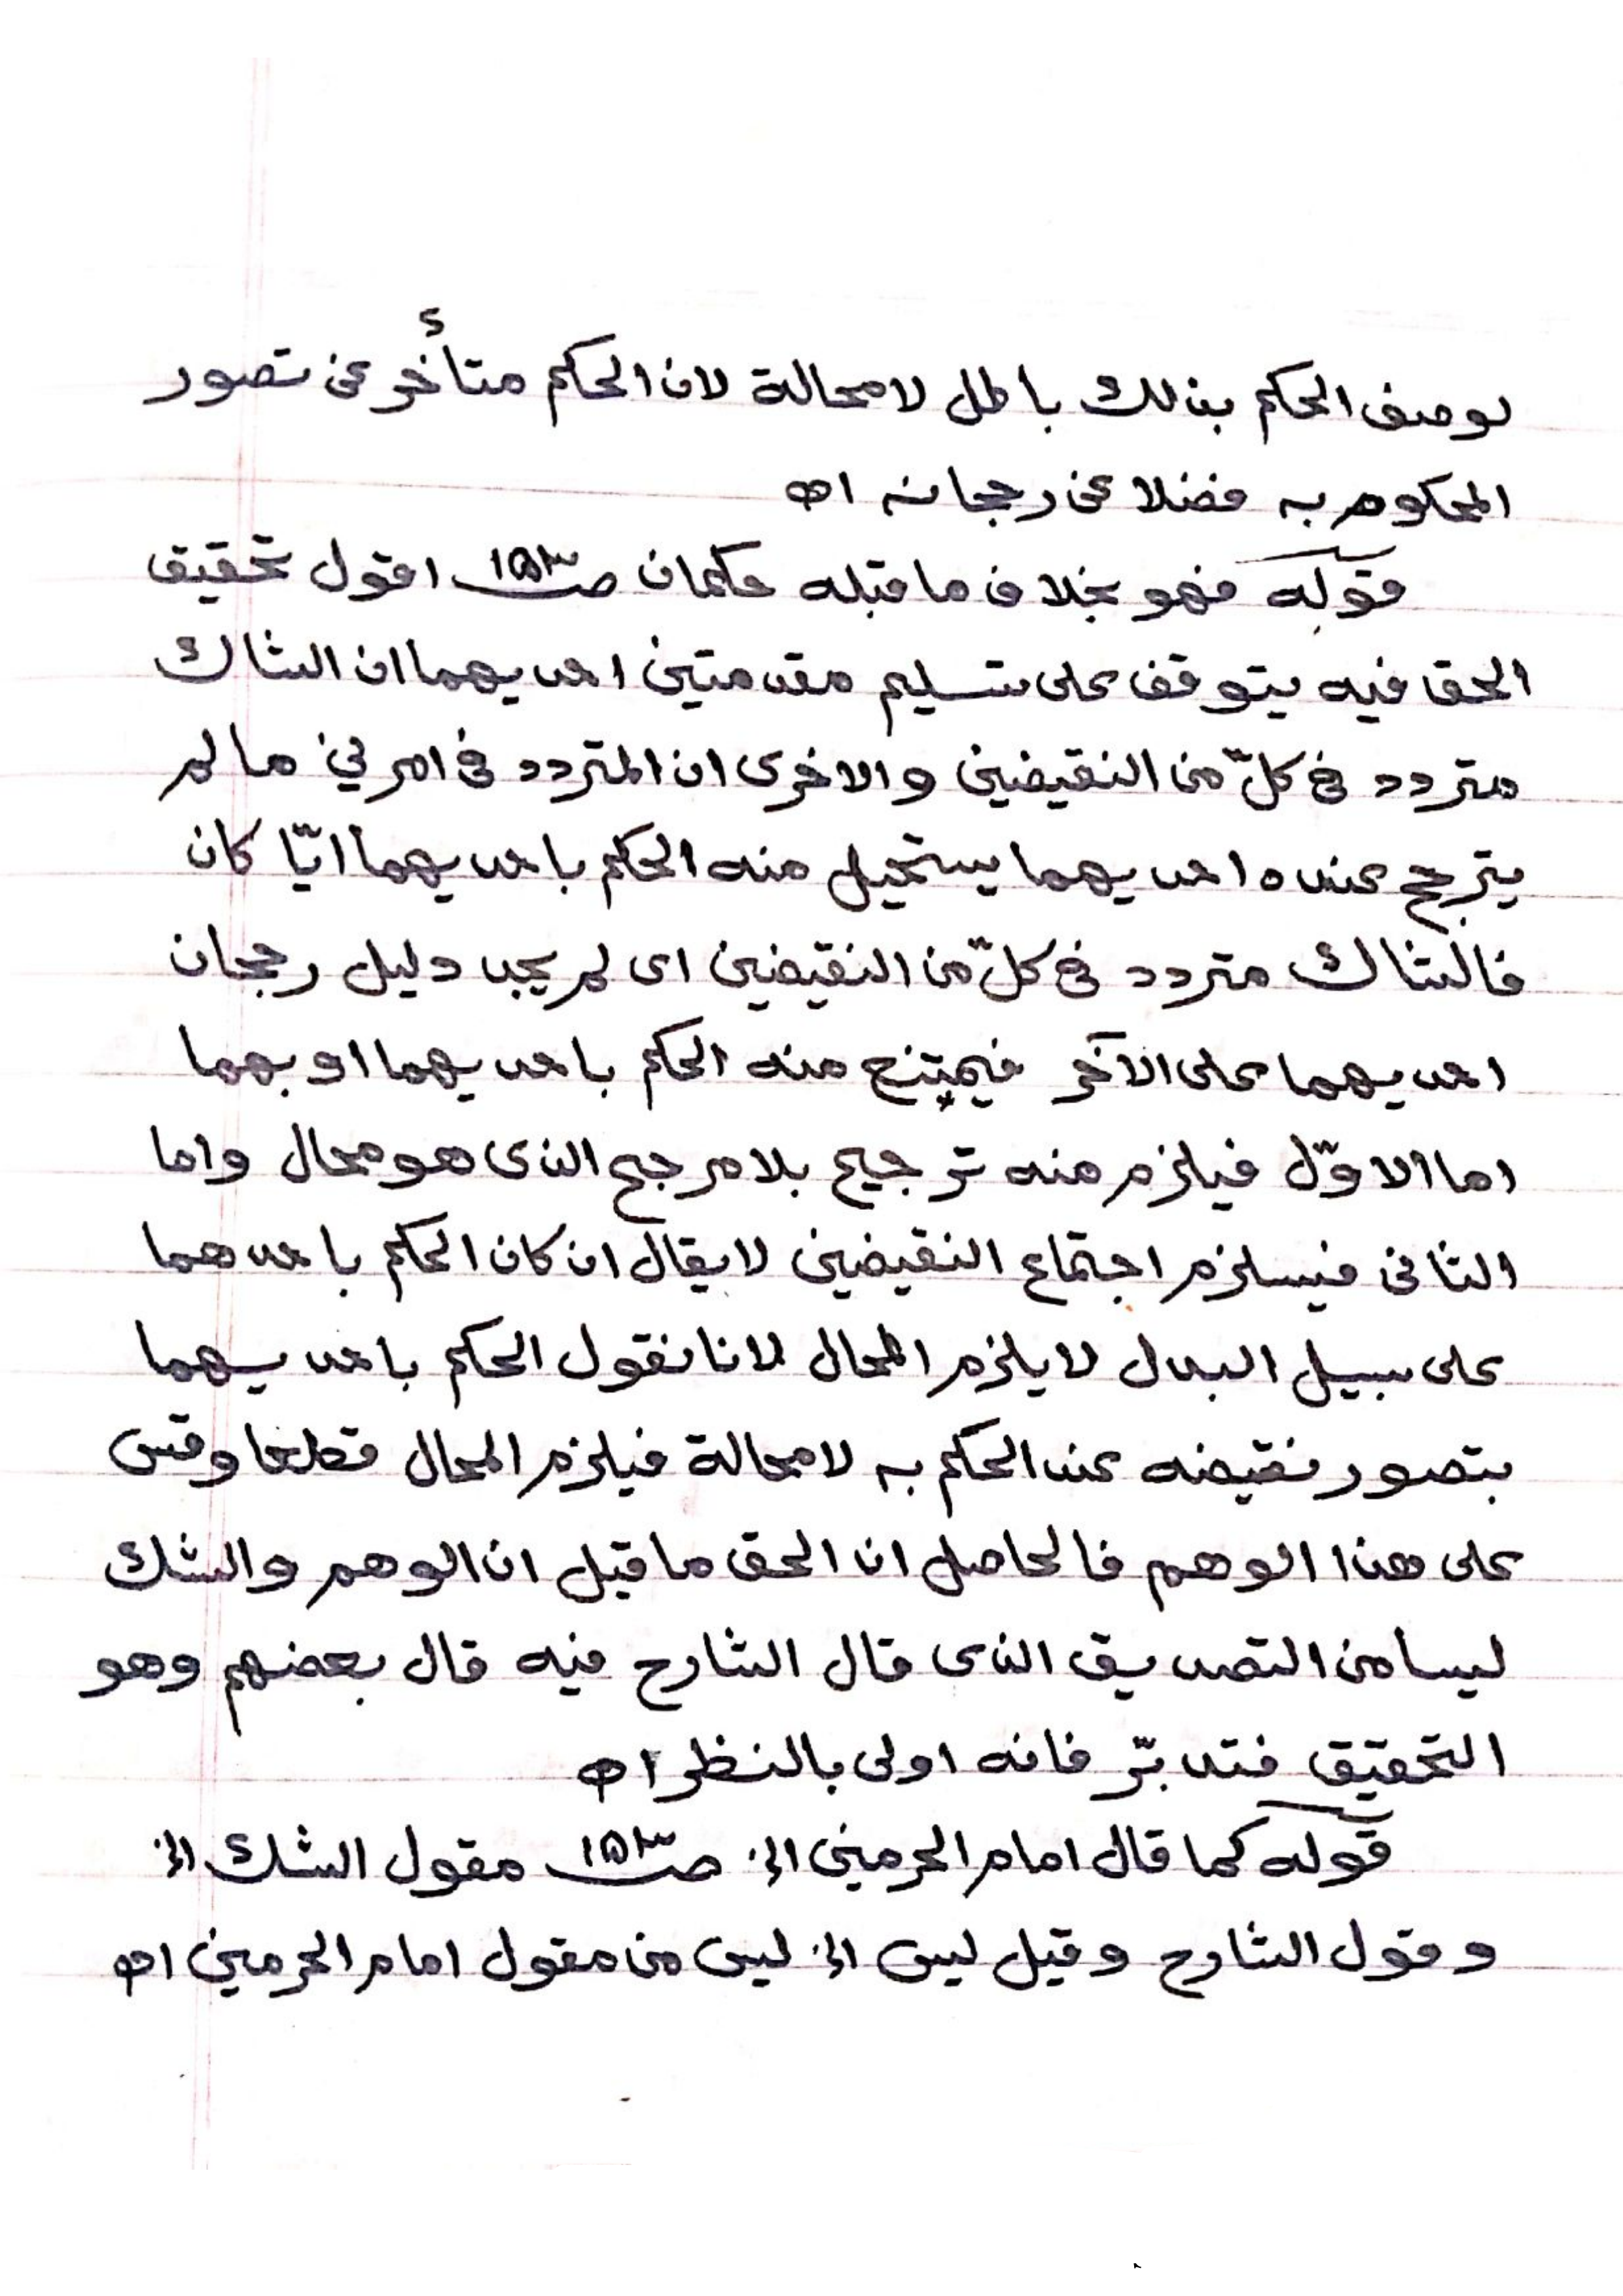 لوصف الحكم بذلك باطل لا محالة لان الحكم متأخر عن تصور
المحكوم به فضلا عن رجحانه اه
قوله فهو بخلاف ما قبله حكمان صـ ١٥٣ اقول تحقيق
الحق فيه يتوقف على تسليم مقدمتين احديهما ان الشاك
متردد فى كلّ من النقيضين والاخرى ان المتردد فى امرين ما لم
يترجح عنده احديهما يستحيل منه الحكم باحديهما ايّا كان
فالشاك متردد فى كلّ من النقيضين اى لم يجد دليل رجحان
احديهما على الآخر فيمتنع منه الحكم باحديهما او بهما
اما الاوّل فيلزم منه ترجيح بلا مرجح الذى هو محال واما
الثانى فيستلزم اجتماع النقيضين لا يقال ان كان الحكم باحدهما
على سبيل البدل لا يلزم المحال لانا نقول الحكم باحديهما
يتصور نقيضه عند الحكم به لا محالة فيلزم المحال قطعا وقس
على هذا الوهم فالحاصل ان الحق ما قيل ان الوهم والشك
ليسا من التصديق الذى قال الشارح فيه قال بعضهم وهو
التحقيق فتدبّر فانه اولى بالنظر اه
قوله كما قال امام الحرمين الخ صـ ١٥٣ مقول الشك الخ
وقول الشارح وقيل ليس الخ ليس من مقول امام الحرمين اه